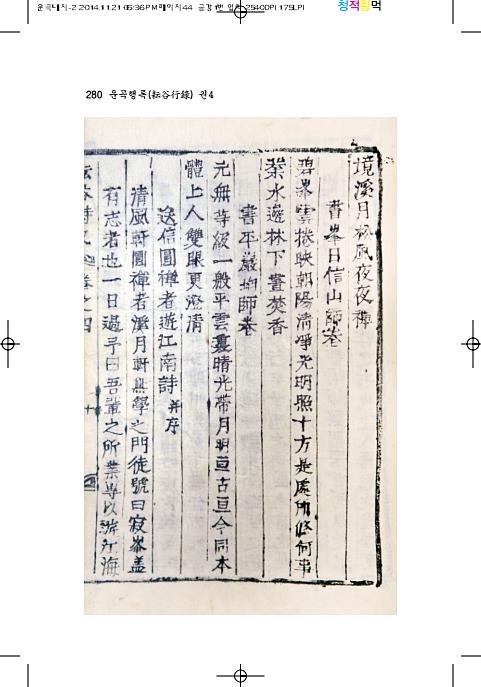 운곡대지-2 2014.11.21 05:36 PM 페이지44
2540DPI 175LPI
청적황먹
280 운곡행록(耘谷行錄) 권4
境溪月松風夜夜禪
書峯日信山師卷
碧峯雲捲映朝陽清淨光明照十方是處所修何事
業水邊林下晝焚香
書平巖均師卷
元無等級一般平雲裏晴光帶月明亘古亘今同本
體上人雙眼更澄清
送信圓禪者遊江南詩 并序
清風軒圓禪者溪月軒無學之門徒號曰寂峯盖
有志者也一日過予曰吾輩之所業專以游江海
耘谷詩史卷之四
十